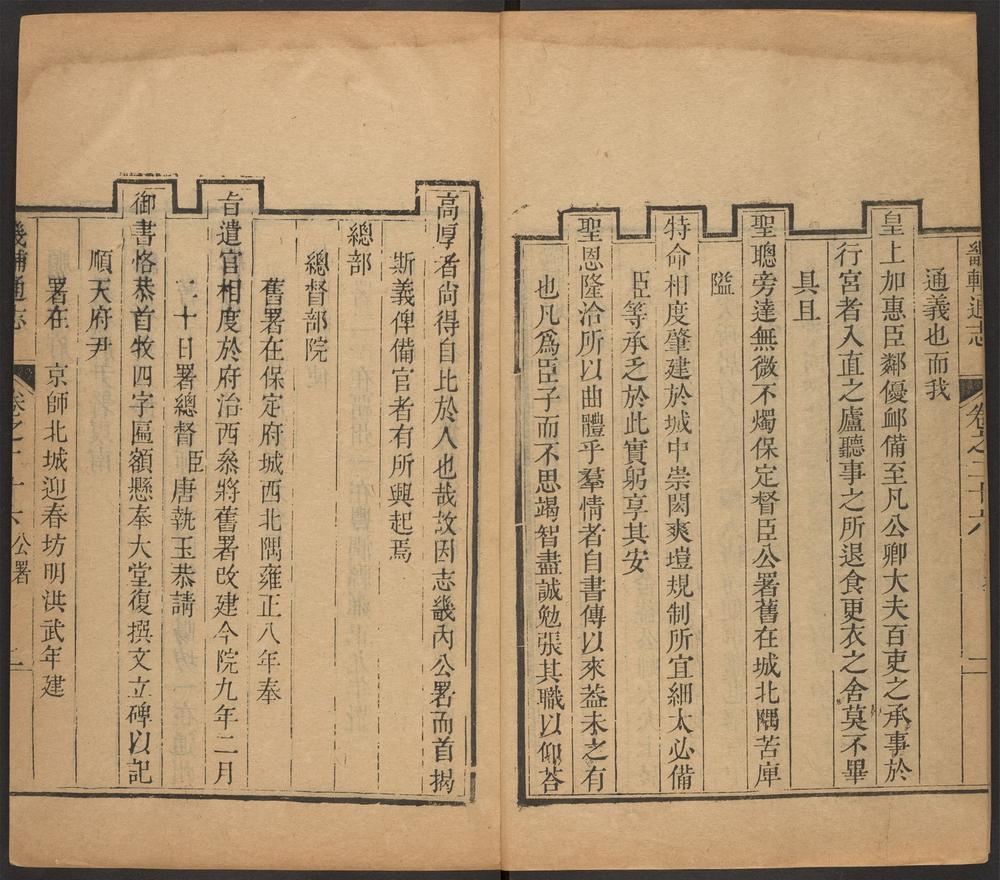 畿輔通志 卷之二十六 二
通義也而我
皇上加惠臣鄰優䘏備至凡公卿大夫百吏之承事於
行宮者入直之廬聽事之所退食更衣之舍莫不畢
具且
聖聰旁達無微不燭保定督臣公署舊在城北隅苦庳
隘
特命相度肇建於城中崇閎爽塏規制所宜細大必備
臣等承乏於此實躬享其安
聖恩隆洽所以曲體乎羣情者自書傳以來葢未之有
也凡爲臣子而不思竭智盡誠勉張其職以仰荅
高厚者尚得自比於人也哉故因志畿內公署而首揭
斯義俾備官者有所興起焉
總部
總督部院
舊署在保定府城西北隅雍正八年奉
旨遣官相度於府治西叅將舊署改建今院九年二月
二十日署總督臣唐執玉恭請
御書恪恭首牧四字匾額懸奉大堂復撰文立碑以記
順天府尹
署在 京師北城迎春坊明洪武年建
畿輔通志 卷之二十六 公署 二